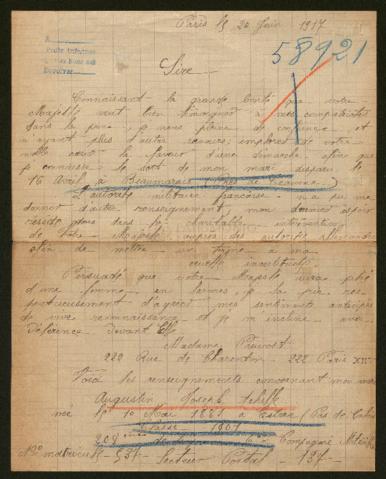 Paris le 20 Juin 1917
58921
Sire
Connaissant la grande bonté que votre
Majesté veut bien témoigner à mes compatriotes
dans la peine, je viens pleine de confiance et
n'ayant plus d'autre secours, implorer de votre
noble cœur la faveur d'une démarche, afin que
je connaisse le sort de mon mari disparu le
16 Avril à
L'autorité militaire française n'a pu me
donner d'autre renseignement mon dernier espoir
réside dans
de votre Majesté auprès des autorités allemandes
afin de mettre un terme à ma
cruelle incertitude
Persuadée que votre Majesté aura pitié
d'une femme en larmes, je la prie
d'agréer mes sentiments anticipés
de vive reconnaissance et je m'incline avec
Déférence devant Elle
Madame
222 Rue de Charenton 222 Paris XII
Voici les renseignements concernant mon mari
Augustin Joseph
né le 10 Mai 1887 à (Pas de Calais
Classe 1907
208 6e Compagnie
No matricule Secteur Postal 197